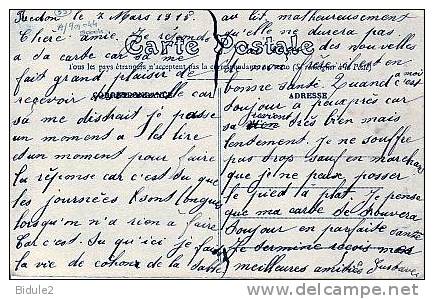 Redon le 2 Mars 1918.
Chère amie. Je reponds
a ta carte car sa me
fait grand plaisir de
recevoir carte car
sa me distrait je passe
un moment a les lire
et un moment pour faire
la réponse car c'est du que
les journées sont longues
lorsqu'on n'a rien a faire
Car c'est du qu'ici je fais
la vie de cohon de la
au lit malheureusement
qu'elle ne durera pas
des nouvelles
frère il est en
bonne santé. Quand a moi c'est
toujour a peu près car
sa revient très bien mais
lentement. Je ne souffre
pas trop sauf en marchant
que je ne peux poser
le pied à plat. Je pense
que ma carte te trouvera
toujour en parfaite santé
Je termine recois mes
meilleures amitiés Gustave
Carte Postale
Tous les pays étrangers n'acceptent pas la correspondance au recto (Se renseigner à la Poste)
CORRESPONDANCE
ADRESSE
Bidule2
delcampe.net